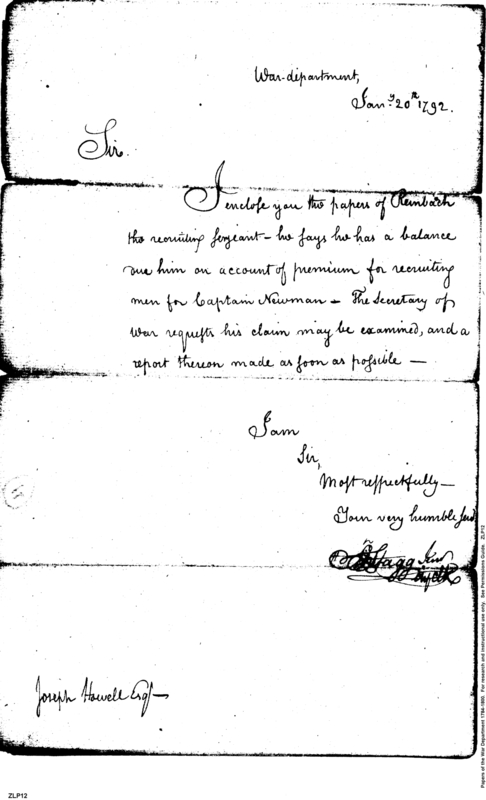 War-department,
Jany 20th 1792.
Sir.
I enclose you the papers of Reinbach
the recruiting Serjeant – he says he has a balance
due him on account of premium for recruiting
men for Captain Newman – The Secretary of
War requests his claim may be examined, and a
report thereon made as soon as possible –
I am
Sir,
Most respectfully –
Your very humble Servt
Stagg Junr
Joseph Howell Esqr –
ZLP12
Papers of the War Department 1784-1800. For research and instructional use only. See Permissions Guide. ZLP12